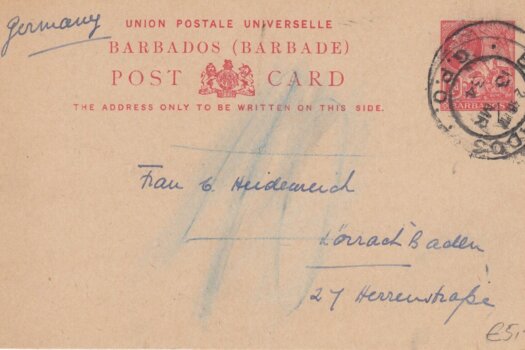 Germany
UNION POSTALE UNIVERSELLE
BARBADOS (BARBADE)
POST CARD
THE ADDRESS ONLY TO BE WRITTEN ON THIS SIDE.
BARBADOS
G.P.O.
Frau C Heidenreich
Lörrach Baden
27 Herrenstraße